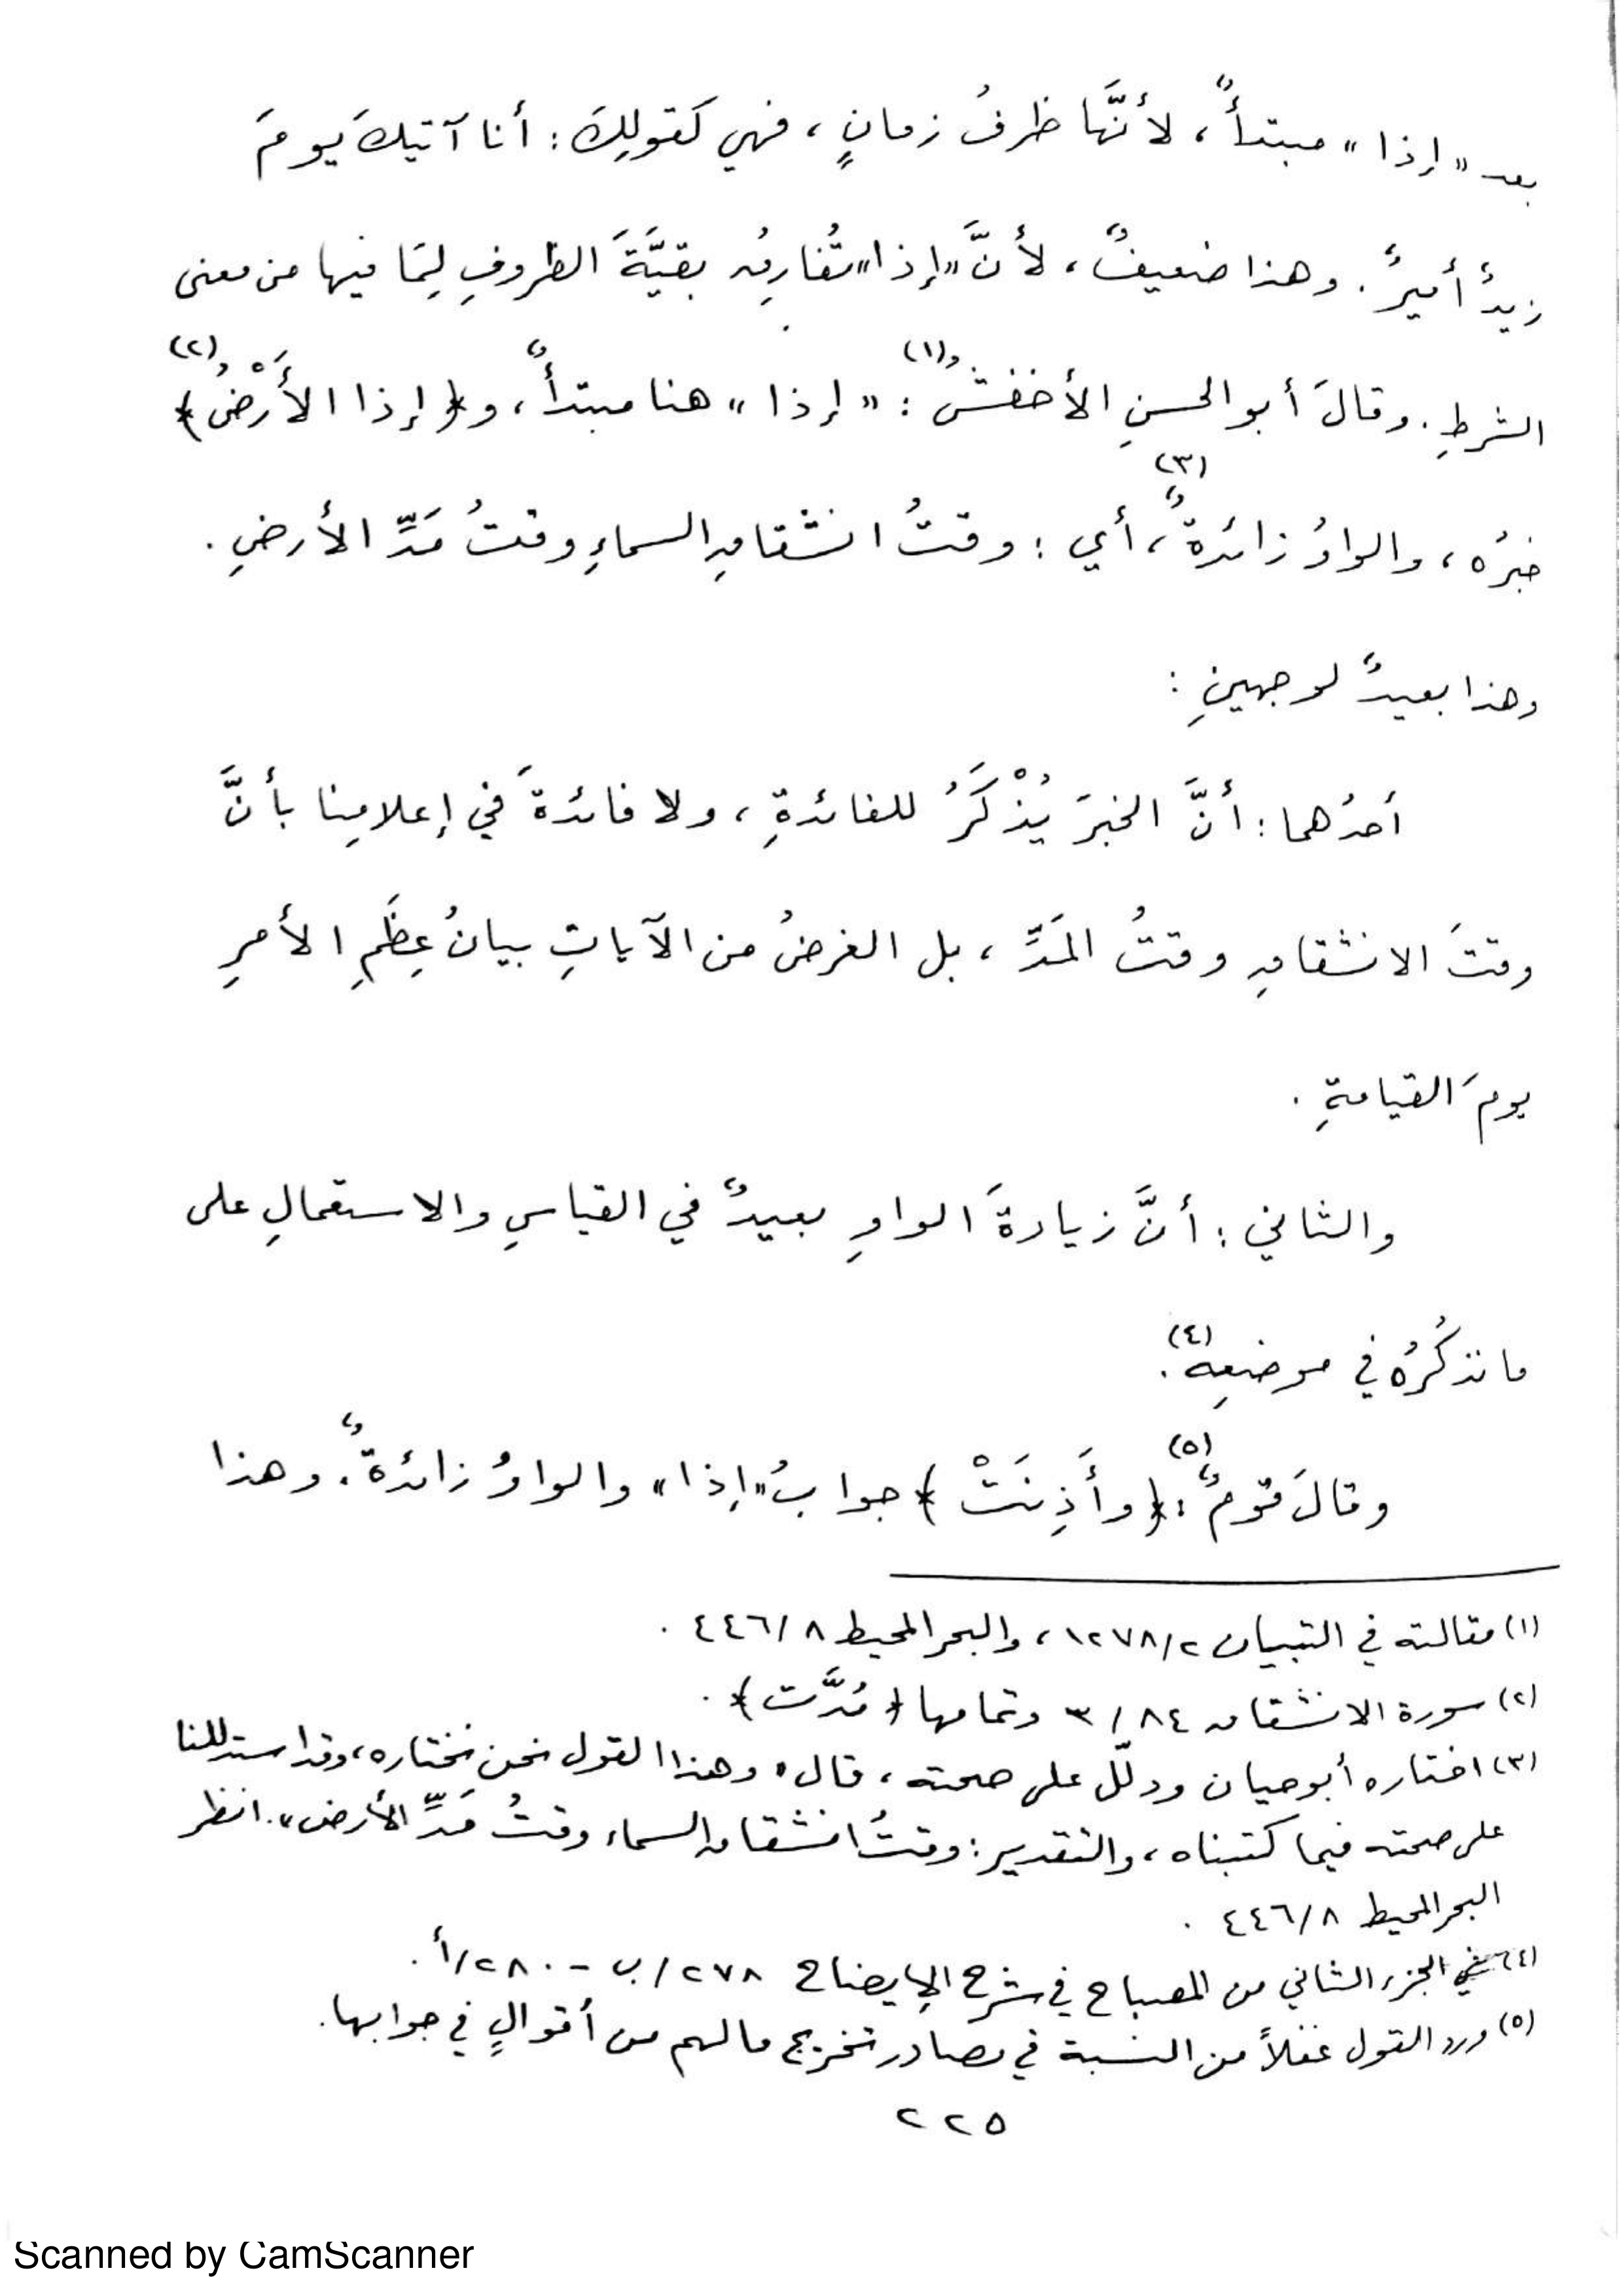 بعد «إذا» مبتدأٌ، لأنَّها ظرفُ زمانٍ، فهي كَقولِكَ: أنا آتيكَ يومَ
زيدٌ أميرٌ. وهذا ضعيفٌ، لأنَّ «إذا» تُفارِقُ بقيَّةَ الظروفِ لِمَا فيها من معنى
الشرطِ. وقالَ أبو الحسنِ الأخفشُ(١): «إذا» هنا مبتدأٌ، و﴿إذا الأَرْضُ﴾(٢)
خبرُه، والواوُ زائدةٌ(٣)، أي: وقتُ انشقاقِ السماءِ وقتُ مَدِّ الأرضِ.
وهذا بعيدٌ لوجهينِ:
أحدُهما: أنَّ الخبرَ يُذْكَرُ للفائدةِ، ولا فائدةَ في إعلامِنا بأنَّ
وقتَ الانشقاقِ وقتُ المَدِّ، بل الغرضُ من الآياتِ بيانُ عِظَمِ الأمرِ
يومَ القيامةِ.
والثاني: أنَّ زيادةَ الواوِ بعيدٌ في القياسِ والاستعمالِ على
ما نذكُرُه في موضعِه(٤).
وقالَ قومٌ(٥): ﴿وأَذِنَتْ﴾ جوابُ «إذا» والواوُ زائدةٌ. وهذا
(١) مقالته في التبيان ١٢٧٨/٢، والبحر المحيط ٤٤٦/٨.
(٢) سورة الانشقاق ٣/٨٤ وتمامها ﴿مُدَّت﴾.
(٣) اختاره أبو حيان ودلّل على صحته، قال «وهذا القول نحن نختاره، وقد استدللنا
على صحته فيما كتبناه، والتقدير: وقتُ انشقاق السماء وقتُ مَدِّ الأرض». انظر
البحر المحيط ٤٤٦/٨.
(٤) في الجزء الثاني من المصباح في شرح الإيضاح ٢٧٨/ب - ٢٨٠/أ.
(٥) ورد القول غفلاً من النسبة في مصادر تخريج ما لهم من أقوالٍ في جوابها.
٢٢٥
Scanned by CamScanner